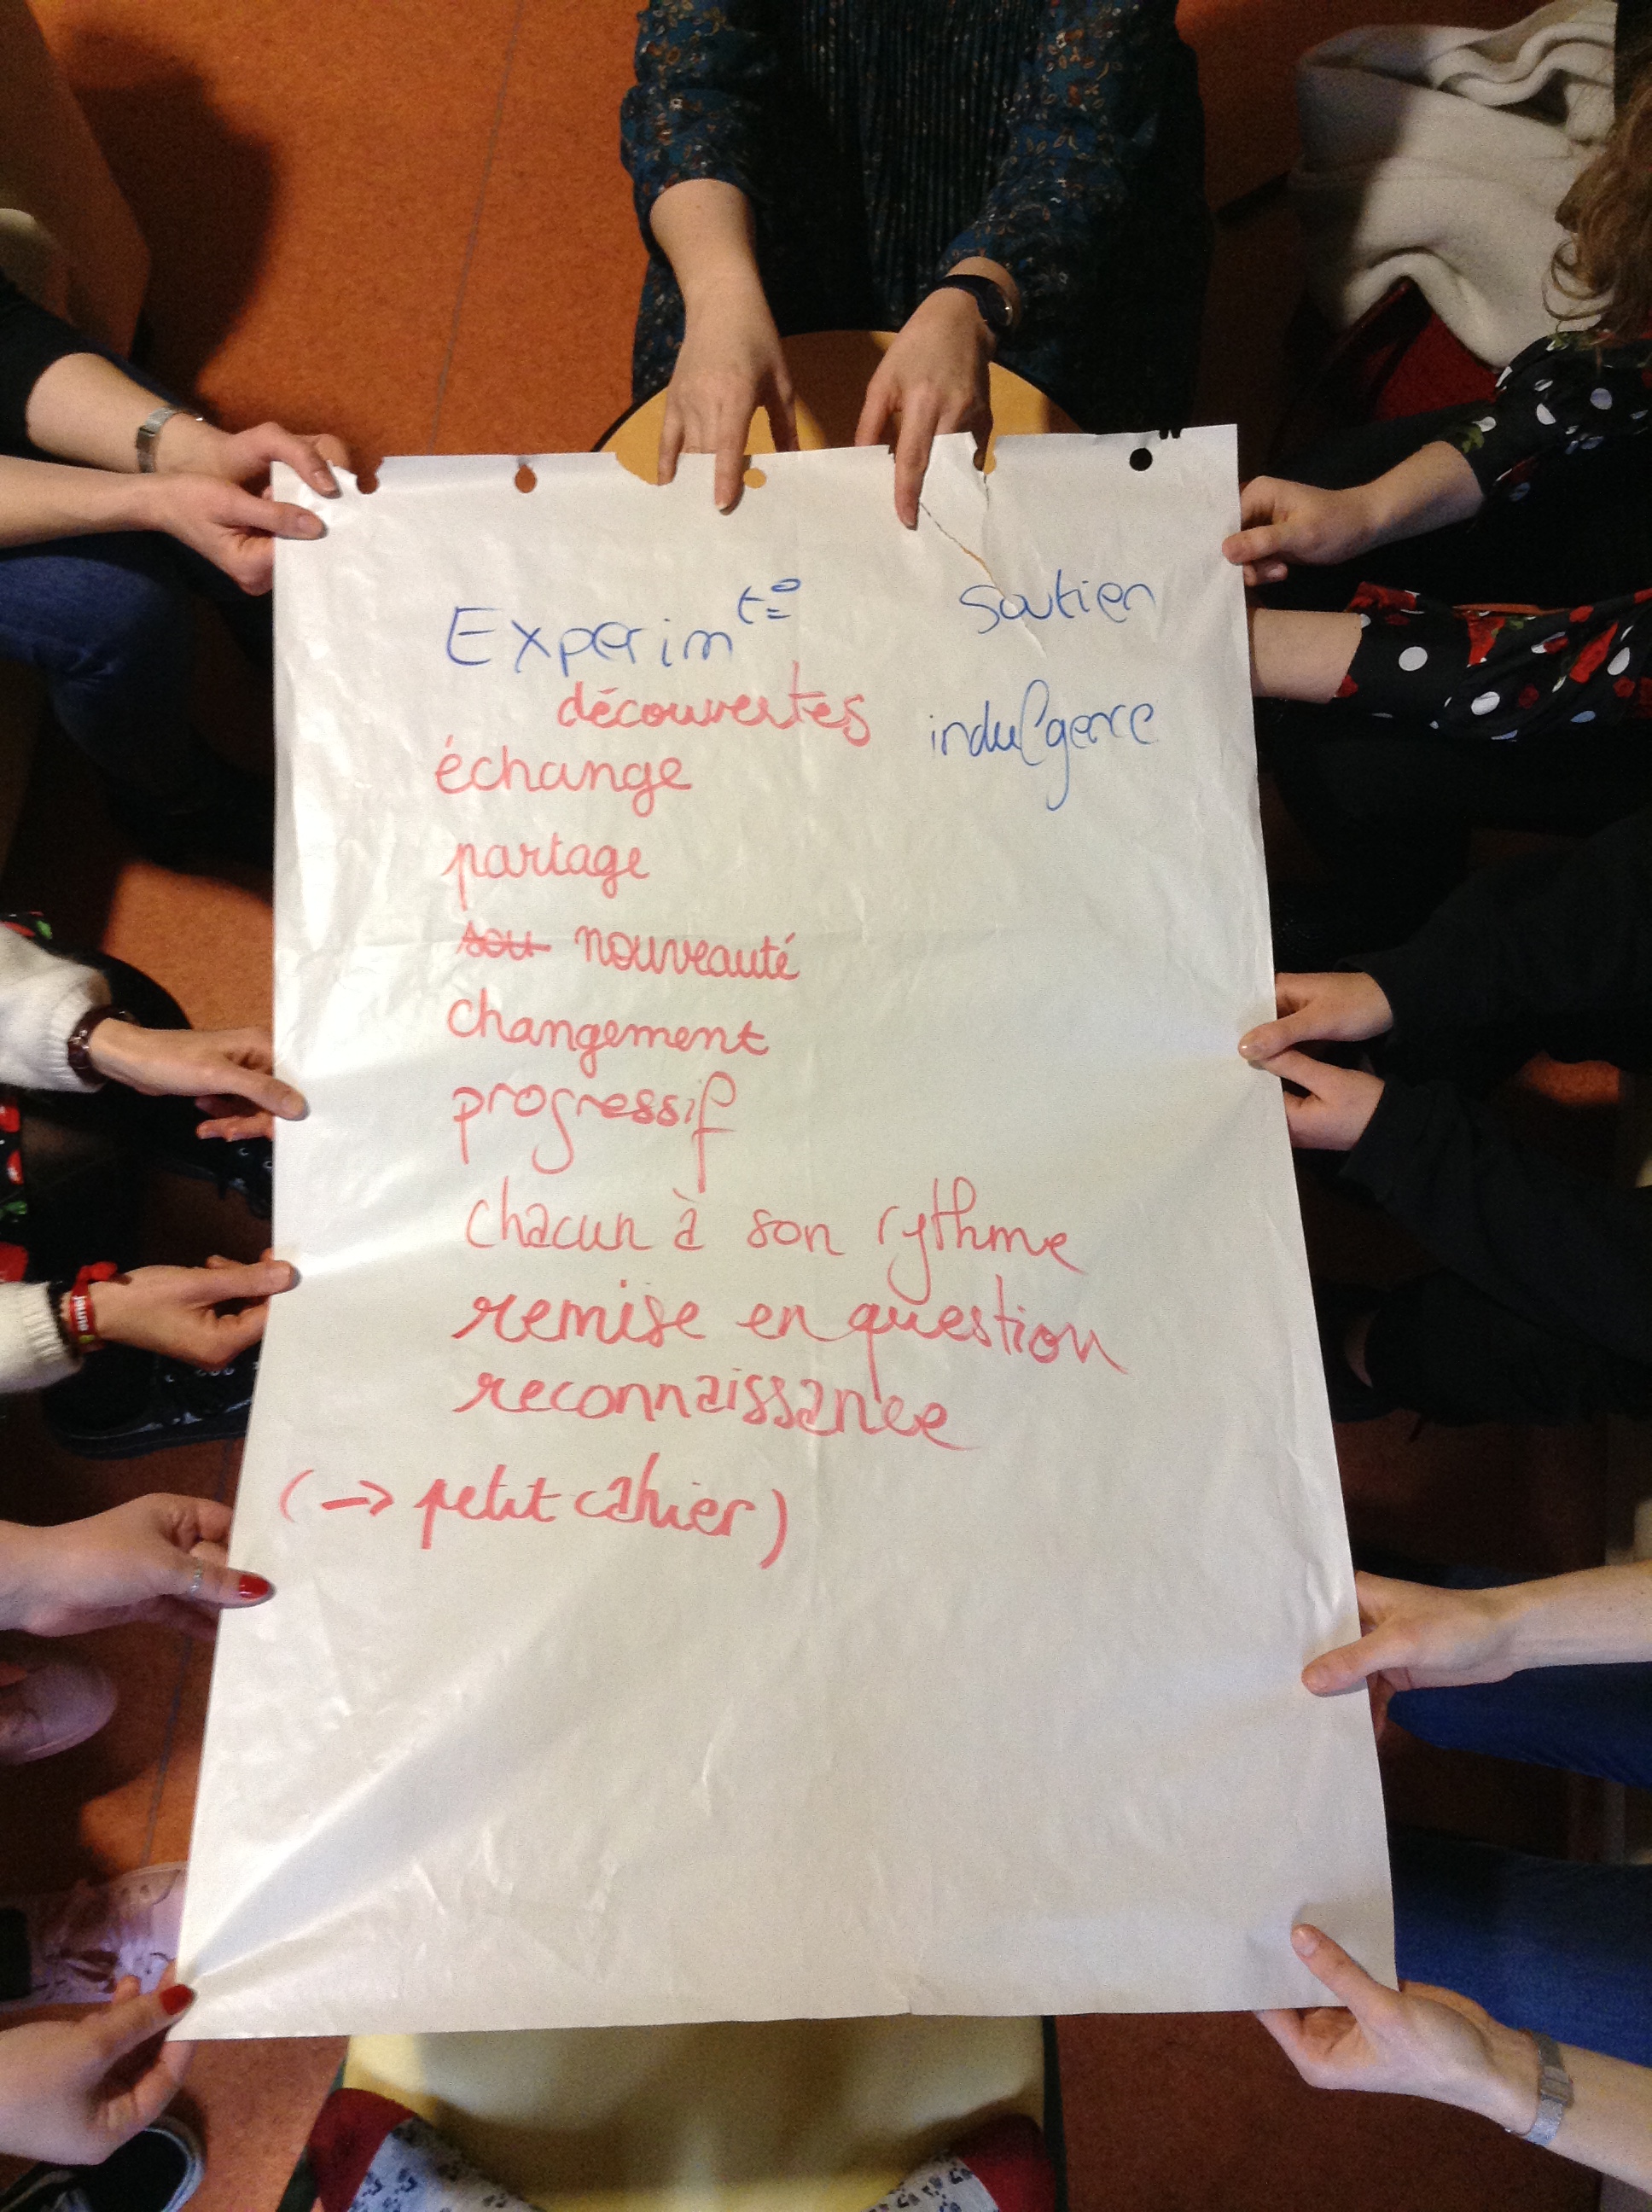 Experim t°
soutien
découvertes
indulgence
échange
partage
sou nouveauté
changement
progressif
chacun à son rythme
remise en question
reconnaissance
(-> petit cahier)
jeune